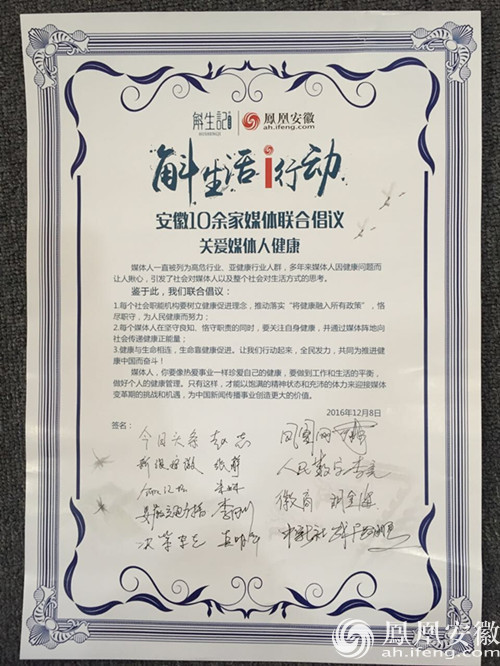 斛生記
鳳凰安徽
ah.ifeng.com
斛生活i行动
安徽10余家媒体联合倡议
关爱媒体人健康
媒体人一直被列为高危行业、亚健康行业人群，多年来媒体人因健康问题而
让人揪心，引发了社会对媒体人以及整个社会对生活方式的思考。
鉴于此，我们联合倡议：
1.每个社会职能机构要树立健康促进理念，推动落实“将健康融入所有政策”，恪
尽职守，为人民健康而努力；
2.每个媒体人在坚守良知、恪守职责的同时，要关注自身健康，并通过媒体阵地向
社会传递健康正能量；
3.健康与生命相连，生命靠健康促进。让我们行动起来，全民发力，共同为推进健
康中国而奋斗！
媒体人，你要像热爱事业一样珍爱自己的健康，要做到工作和生活的平衡，
做好个人的健康管理。只有这样，才能以饱满的精神状态和充沛的体力来迎接媒体
变革期的挑战和机遇，为中国新闻传播事业创造更大的价值。
2016年12月8日
签名：
今日头条
凤凰网
新浪安徽
人民数字
徽商
安徽交通广播
决策杂志
中新社
鳳凰安徽
ah.ifeng.com